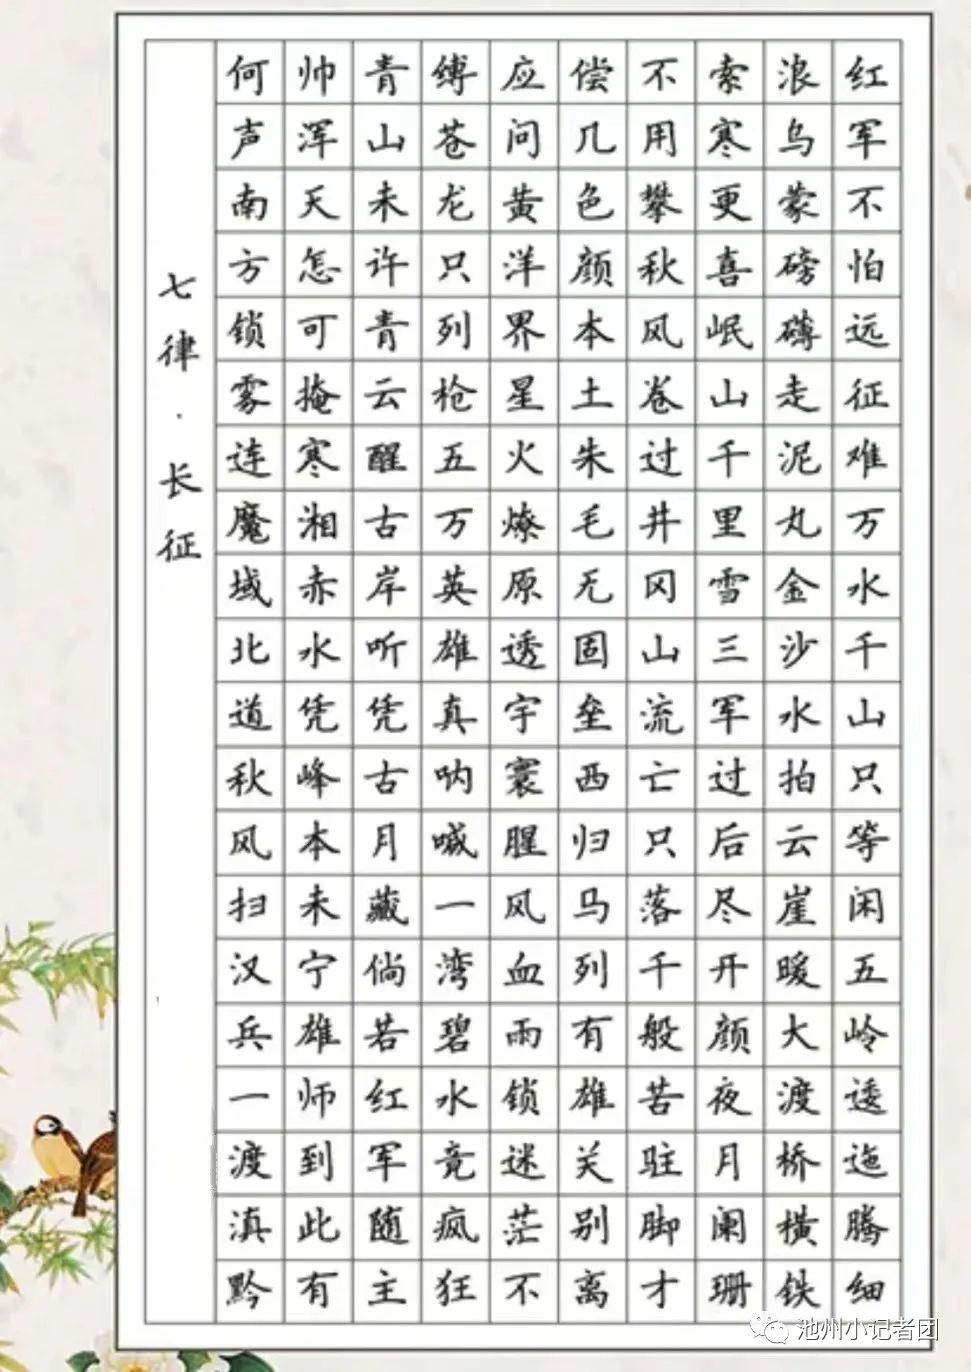 红军不怕远征难万水千山只等闲五岭逶迤腾细
浪乌蒙磅礴走泥丸金沙水拍云崖暖大渡桥横铁
索寒更喜岷山千里雪三军过后尽开颜夜月阑珊
不用攀秋风卷过井冈山流亡只落千般苦驻脚才
偿几色颜本土朱毛无固垒西归马列有雄关别离
应问黄洋界星火燎原透宇寰腥风血雨锁迷茫不
缚苍龙只列枪五万英雄真呐喊一湾碧水竟疯狂
青山未许青云醒古岸听凭古月藏倘若红军随主
帅浑天怎可掩寒湘赤水凭峰本未宁雄师到此有
何声南方锁雾连魔域北道秋风扫汉兵一渡滇黔
七律·长征
池州小记者团